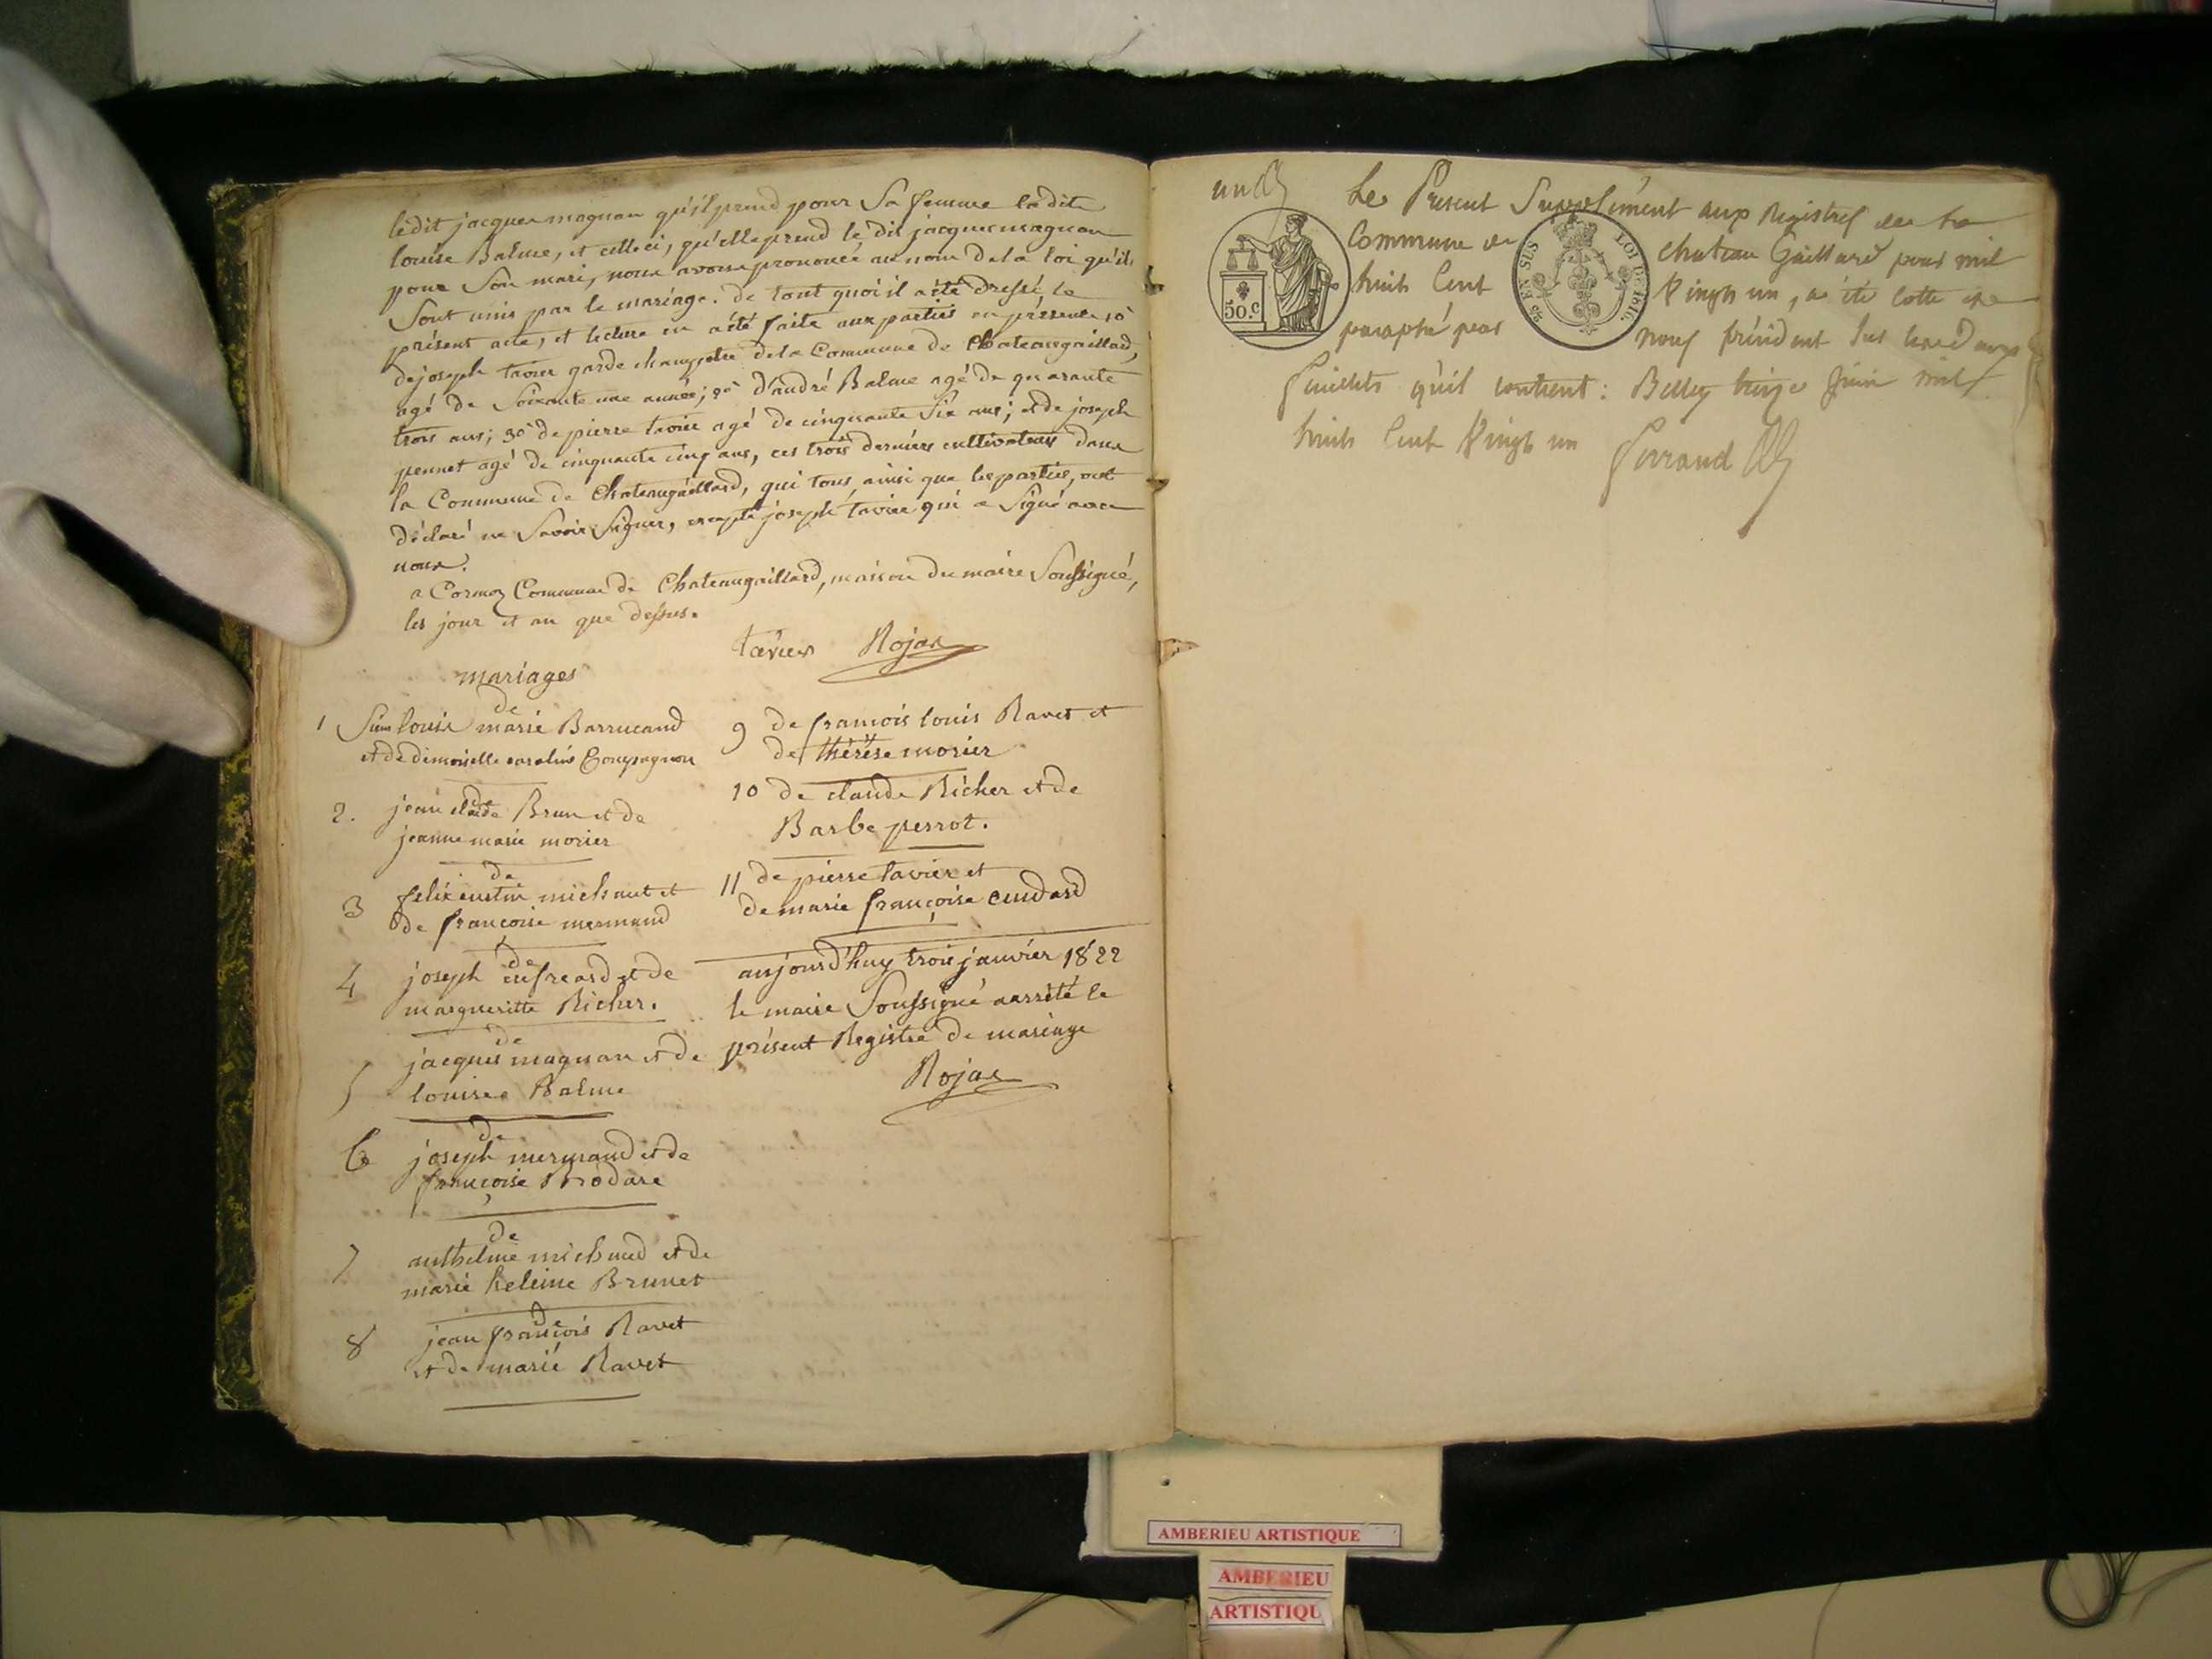 ledit jacques magnan qu'il prend pour Sa femme ladite
louise Balme, et celle ci, qu'elle prend le dit jacques magnan
pour Son mari, nous avons prononcé au nom de la loi qu'ils
Sont unis par le mariage. De tout quoi il a été dressé le
présent acte, et lecture en a été faite aux parties en présence 1o
de joseph tavier garde champêtre de la Commune de Chateaugaillard,
agé de Soixante une année; 2o d'andré Balme agé de quarante
trois ans; 3o de pierre tavier agé de cinquante Six ans; et de joseph
pennet agé de cinquante cinq ans, ces trois derniers cultivateurs dans
la Commune de Chateaugaillard, qui tous, ainsi que les parties, ont
déclaré ne Savoir Signer, excepté joseph tavier qui a Signé avec
nous.
a Cormoz Commune de Chateaugaillard, maison du maire Soussigné,
les jour et an que dessus.
tavier Rojas
mariages
de
1 Sieur louis marie Barrucand
et de demoiselle caroline Compagnon
2. jean claude Brun et de
jeanne marie morier
de
3 felix justin michaut et
de françoise mermand
de
4 joseph cufreard et de
margueritte Richer.
de
5 jacques magnan et de
louise Balme
de
6 joseph mermand et de
françoise Brodare
de
7 anthelme michaud et de
marie heleine Brunet
de
8 jean françois Ravet
et de marie Ravet
9 de francois louis Ravet et
de thérèse morier
10 de claude Richer et de
Barbe perrot.
11 de pierre tavier et
de marie françoise cudard
aujourd'huy trois janvier 1822
le maire Soussigné a arrêté le
présent Registre de mariage
Rojas
un
Le Present Supplément aux Registres de la
Commune de chateau Gaillard pour mil
huit Cent Vingt un, a été cotté et
paraphé par nous président sur les deux
feuillets qu'il contient: Belley treize Juin mil
huit Cent Vingt un Ferrand
50.C
25 EN SUS
LOI DE 1816.
AMBERIEU ARTISTIQUE
AMBERIEU
ARTISTIQU